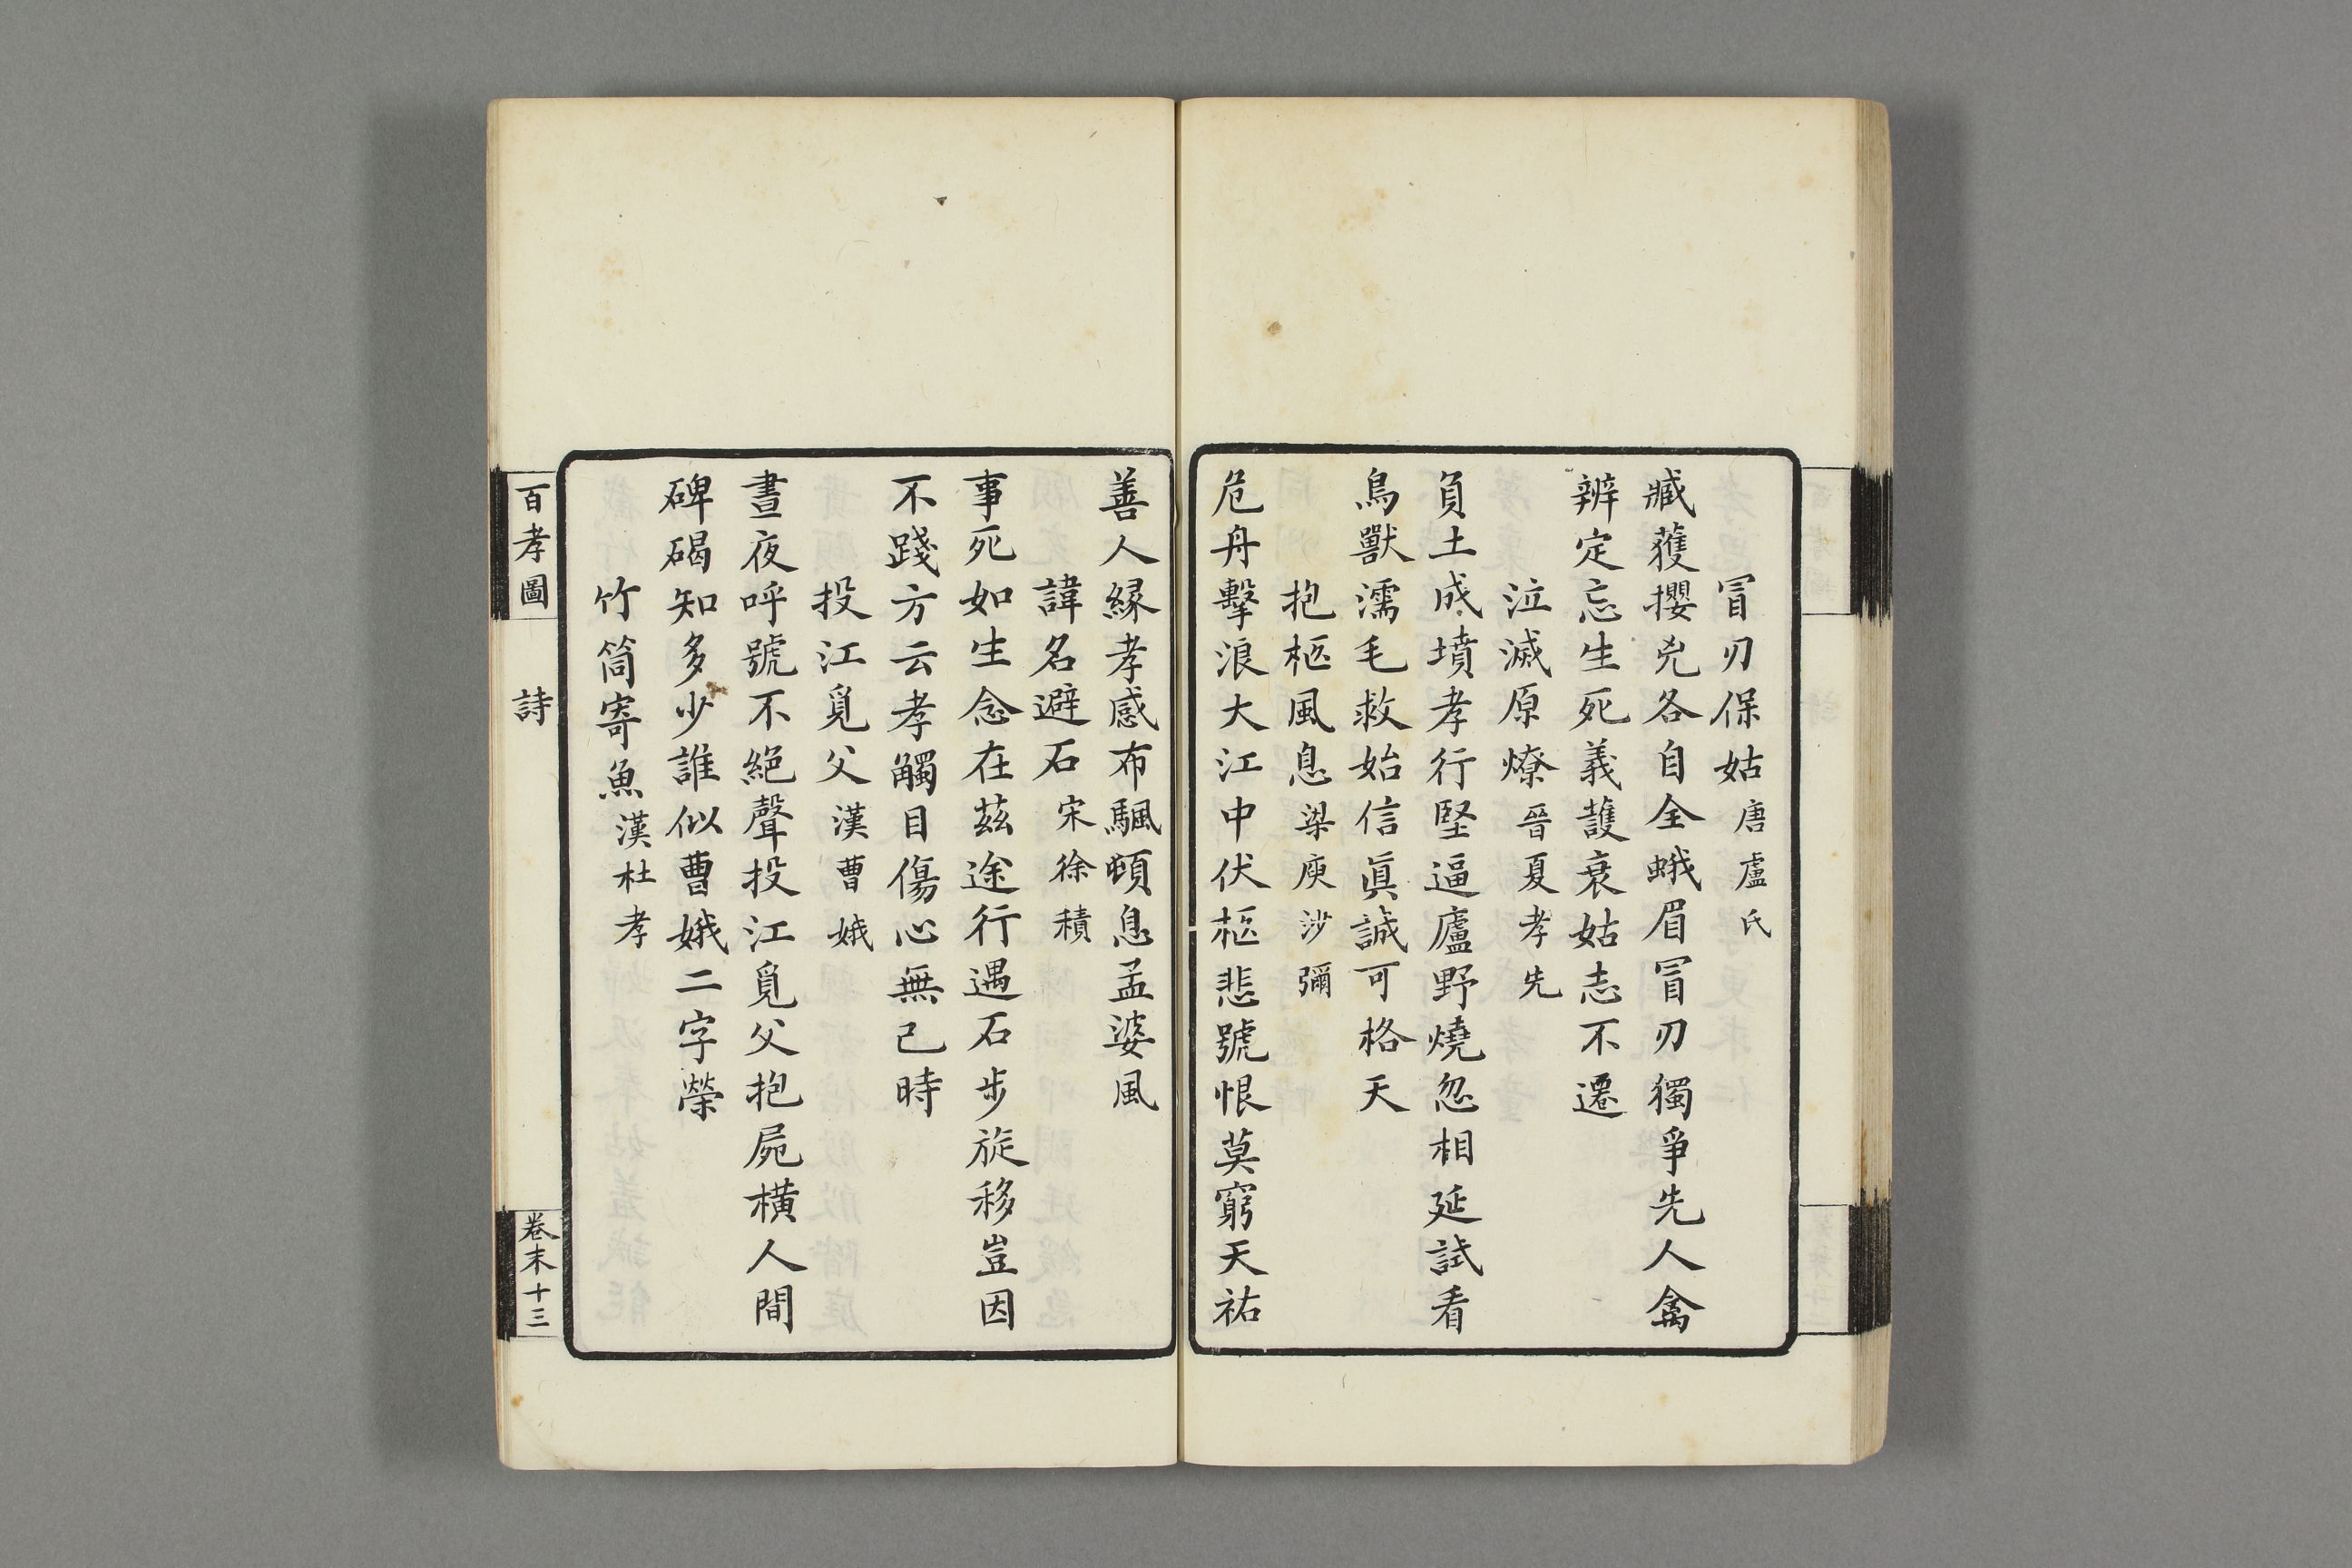 冒刃保姑 唐盧氏
臧獲攖兇各自全蛾眉冒刃獨爭先人禽
辨定忘生死義護衰姑志不遷
泣滅原燎 晉夏孝先
負土成墳孝行堅逼廬野燒忽相延試看
鳥獸濡毛救始信眞誠可格天
抱柩風息 梁庾沙彌
危舟擊浪大江中伏柩悲號恨莫窮天祐
善人緣孝感布颿頓息孟婆風
諱名避石 宋徐積
事死如生念在茲途行遇石步旋移豈因
不踐方云孝觸目傷心無已時
投江覓父 漢曹娥
晝夜呼號不絕聲投江覓父抱屍橫人間
碑碣知多少誰似曹娥二字榮
竹筒寄魚 漢杜孝
百孝圖 詩 卷末十三